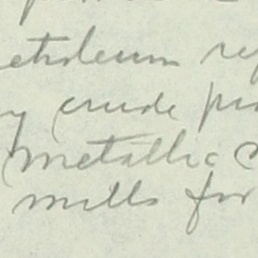 etroleum re
y crude pr
(metallic c
mills for